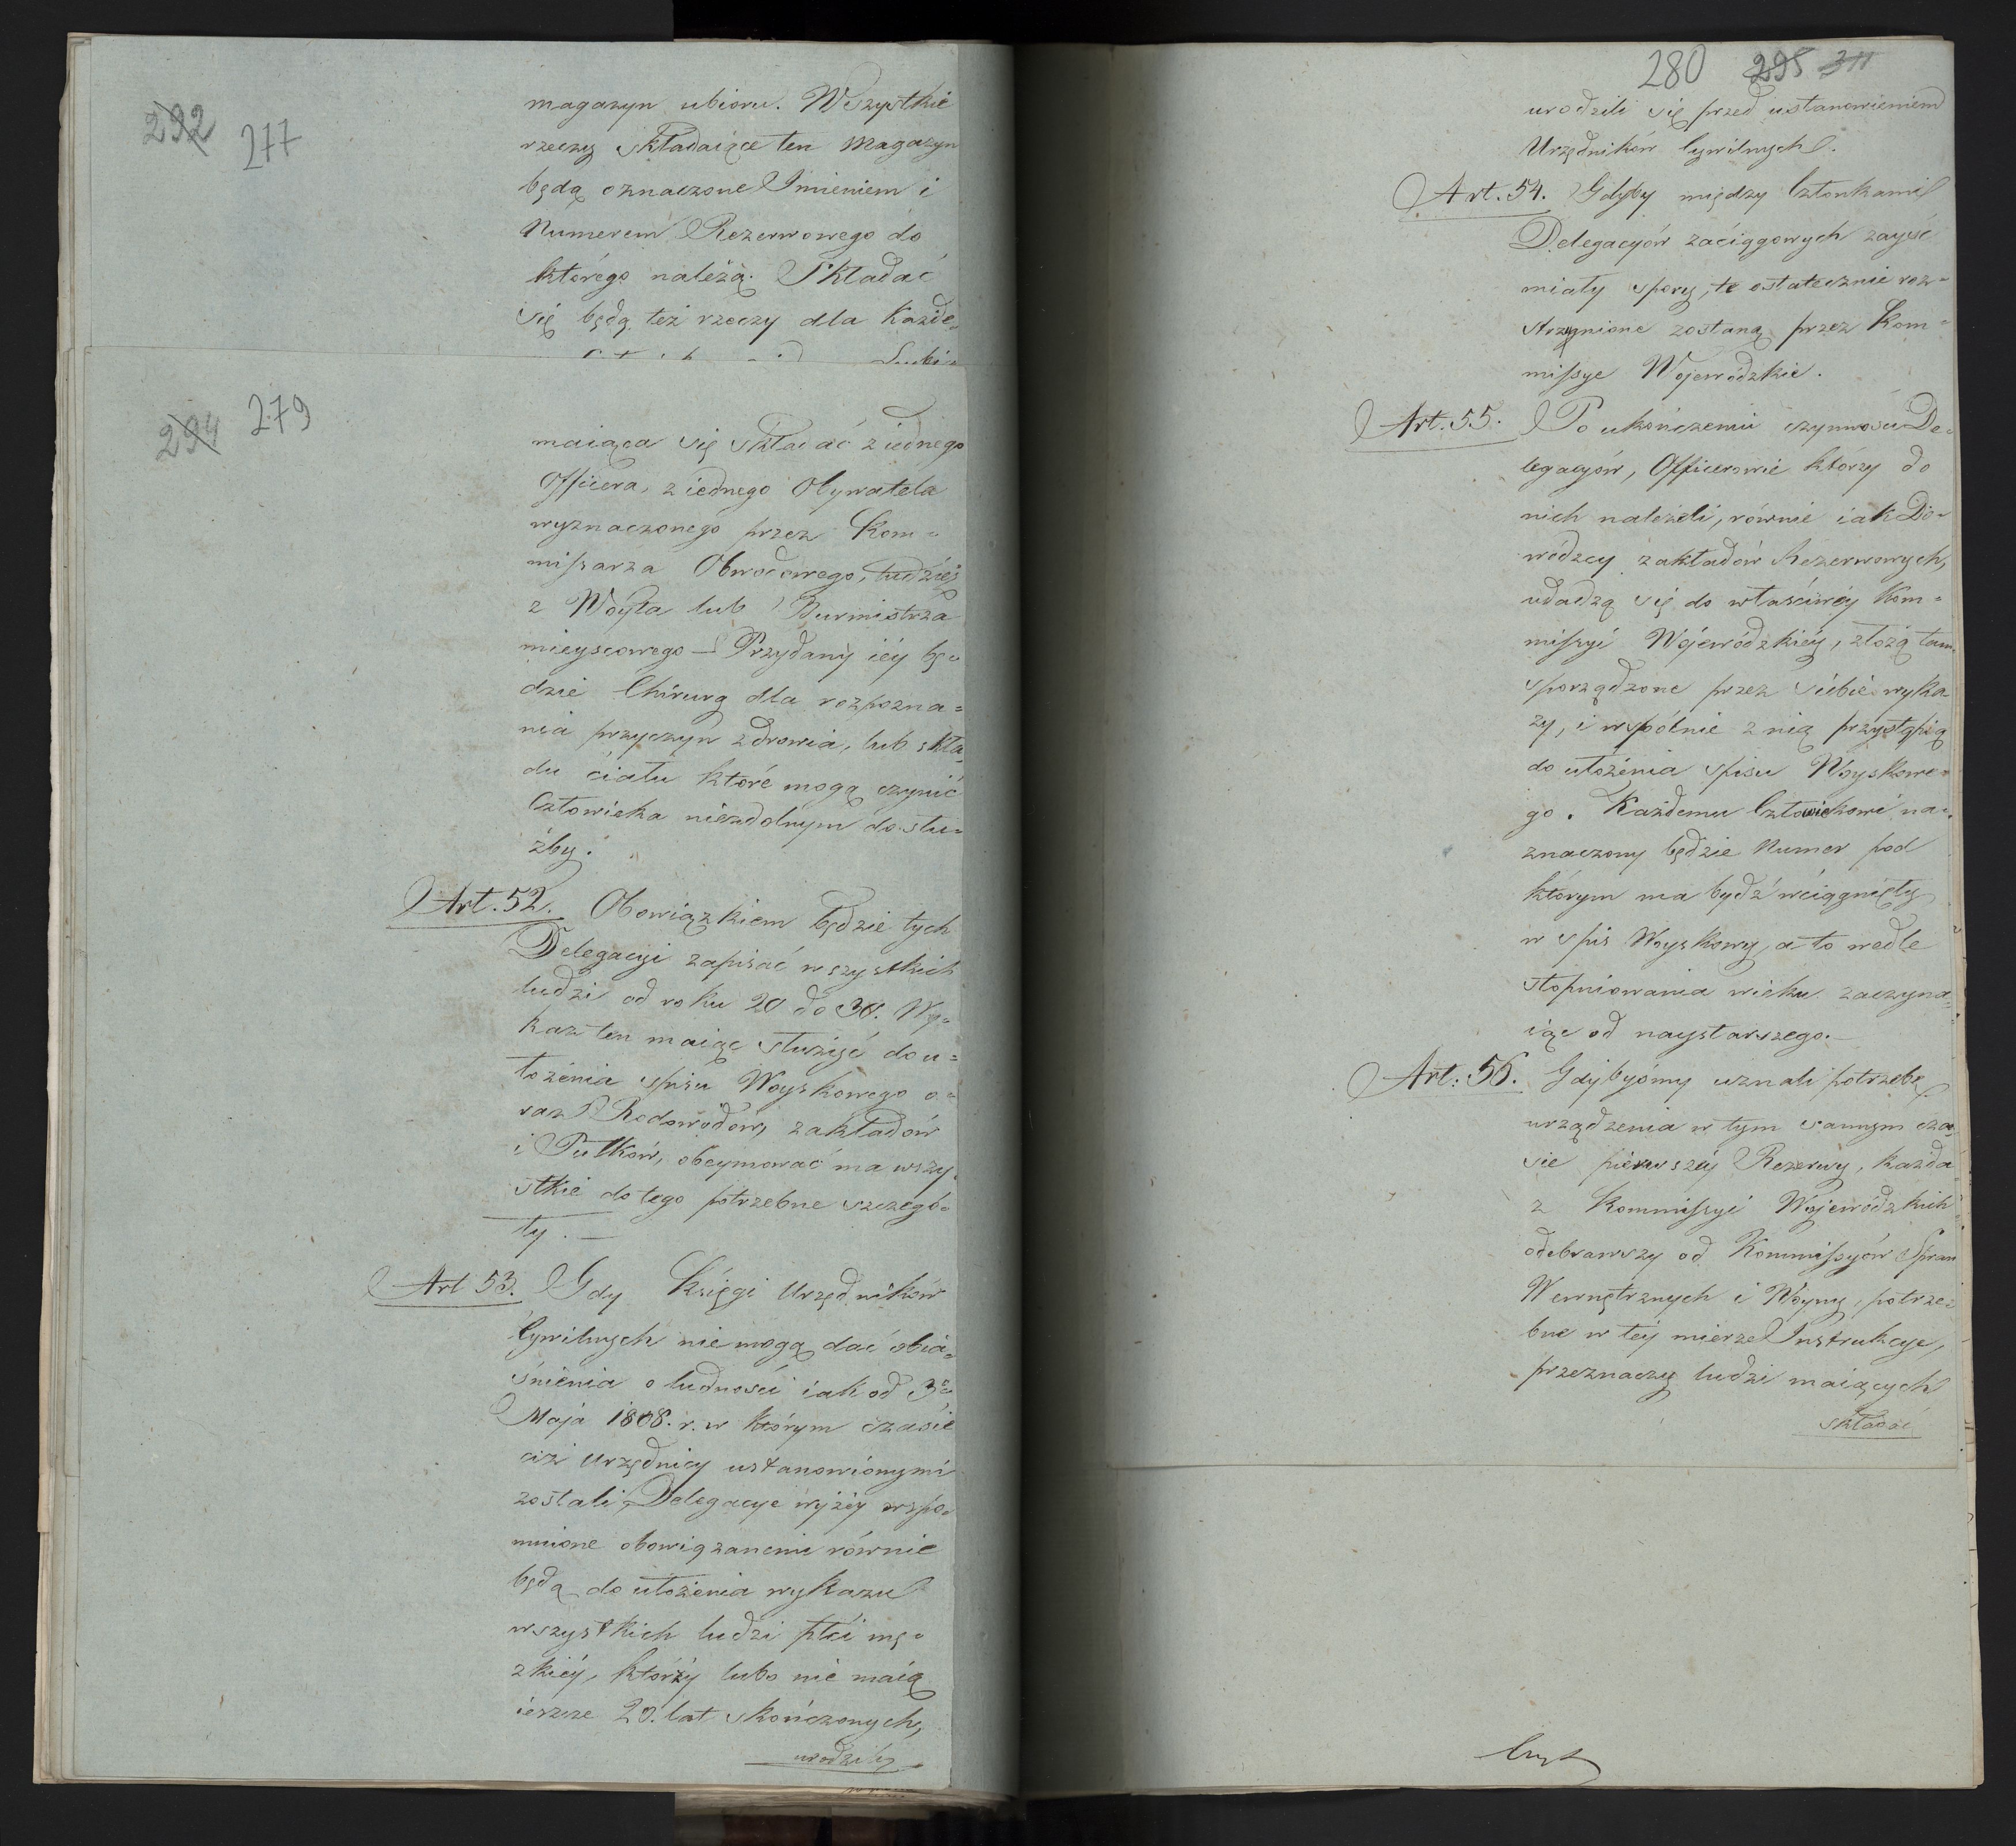 292 277
magazyn ubioru. Wszystkie
rzeczy składaiące ten Magazyn
będą oznaczone Imieniem i
Numerem Rezerwowego do
którégo należą. Składać
się będą też rzeczy dla Każde-
294 279
maiąca się składać z iednego
Officera, z iednego Obywatela
wyznaczonego przez Kom-
missarza Obwodowego, tudzież
z Woyta lub Burmistrza
mieyscowego – Przydany iéy bę-
dzie Chirurg dla rozpozna-
nia przyczyn zdrowia, lub skła-
du ciału które mogą czynić
Człowieka niezdolnym do słu-
żby.
Art. 52. Obowiązkiem będzie tych
Delegacyi zapisać wszystkich
ludzi od roku 20 do 30. Wy-
kaz ten maiąc służyć do u-
łożenia spisu Woyskowego o-
raz Rodowodów, zakładów
i Pułków, obeymować ma wszy-
stkie do tego potrzebne szczegó-
ły. —
Art 53. Gdy Księgi Urzędników
Cywilnych nie mogą dać obia-
śnienia o ludności iak od 3º
Maja 1808. r. w którym czasie
ciż Urzędnicy ustanowionymi
zostali, Delegacye wyżéy wspo-
mnione obowiązanemi równie
będą do ułożenia wykazu
wszystkich ludzi płci mę-
zkiéy, którzy lubo nie maią
ieszcze 20. lat skończonych,
urodzili
280 295 311
urodzili się przed ustanowieniem
Urzędników Cywilnych.
Art. 54. Gdyby między Członkami
Delegacyów zaciągowych zayść
miały spory, te ostatecznie roz-
strzygnione zostaną przez Kom-
missye Wojewódzkie.
Art. 55. Po ukończeniu czynności De-
legacyów, Officerowie którzy do
nich należeli, równie iak Do-
wódzcy zakładów Rezerwowych,
udadzą się do właściwéy Kom-
missyi Wojewódzkiéy, złożą tam
sporządzone przez siebie wyka-
zy, i wspólnie z nią przystąpią
do ułożenia spisu Woyskowe-
go. Każdemu Człowiekowi na-
znaczony będzie Numer pod
którym ma bydź wciągnięty
w spis Woyskowy, a to wedle
stopniowania wieku zaczyna-
iąc od naystarszego. —
Art: 56. Gdybyśmy uznali potrzebę
urządzenia w tym samym cza-
sie pierwszéy Rezerwy, każda
z Kommissyi Wojewódzkich
odebrawszy od Kommissyów Spraw
Wewnętrznych i Woyny, potrze-
bne w téy mierze Instrukcye,
przeznaczy ludzi maiących
składać